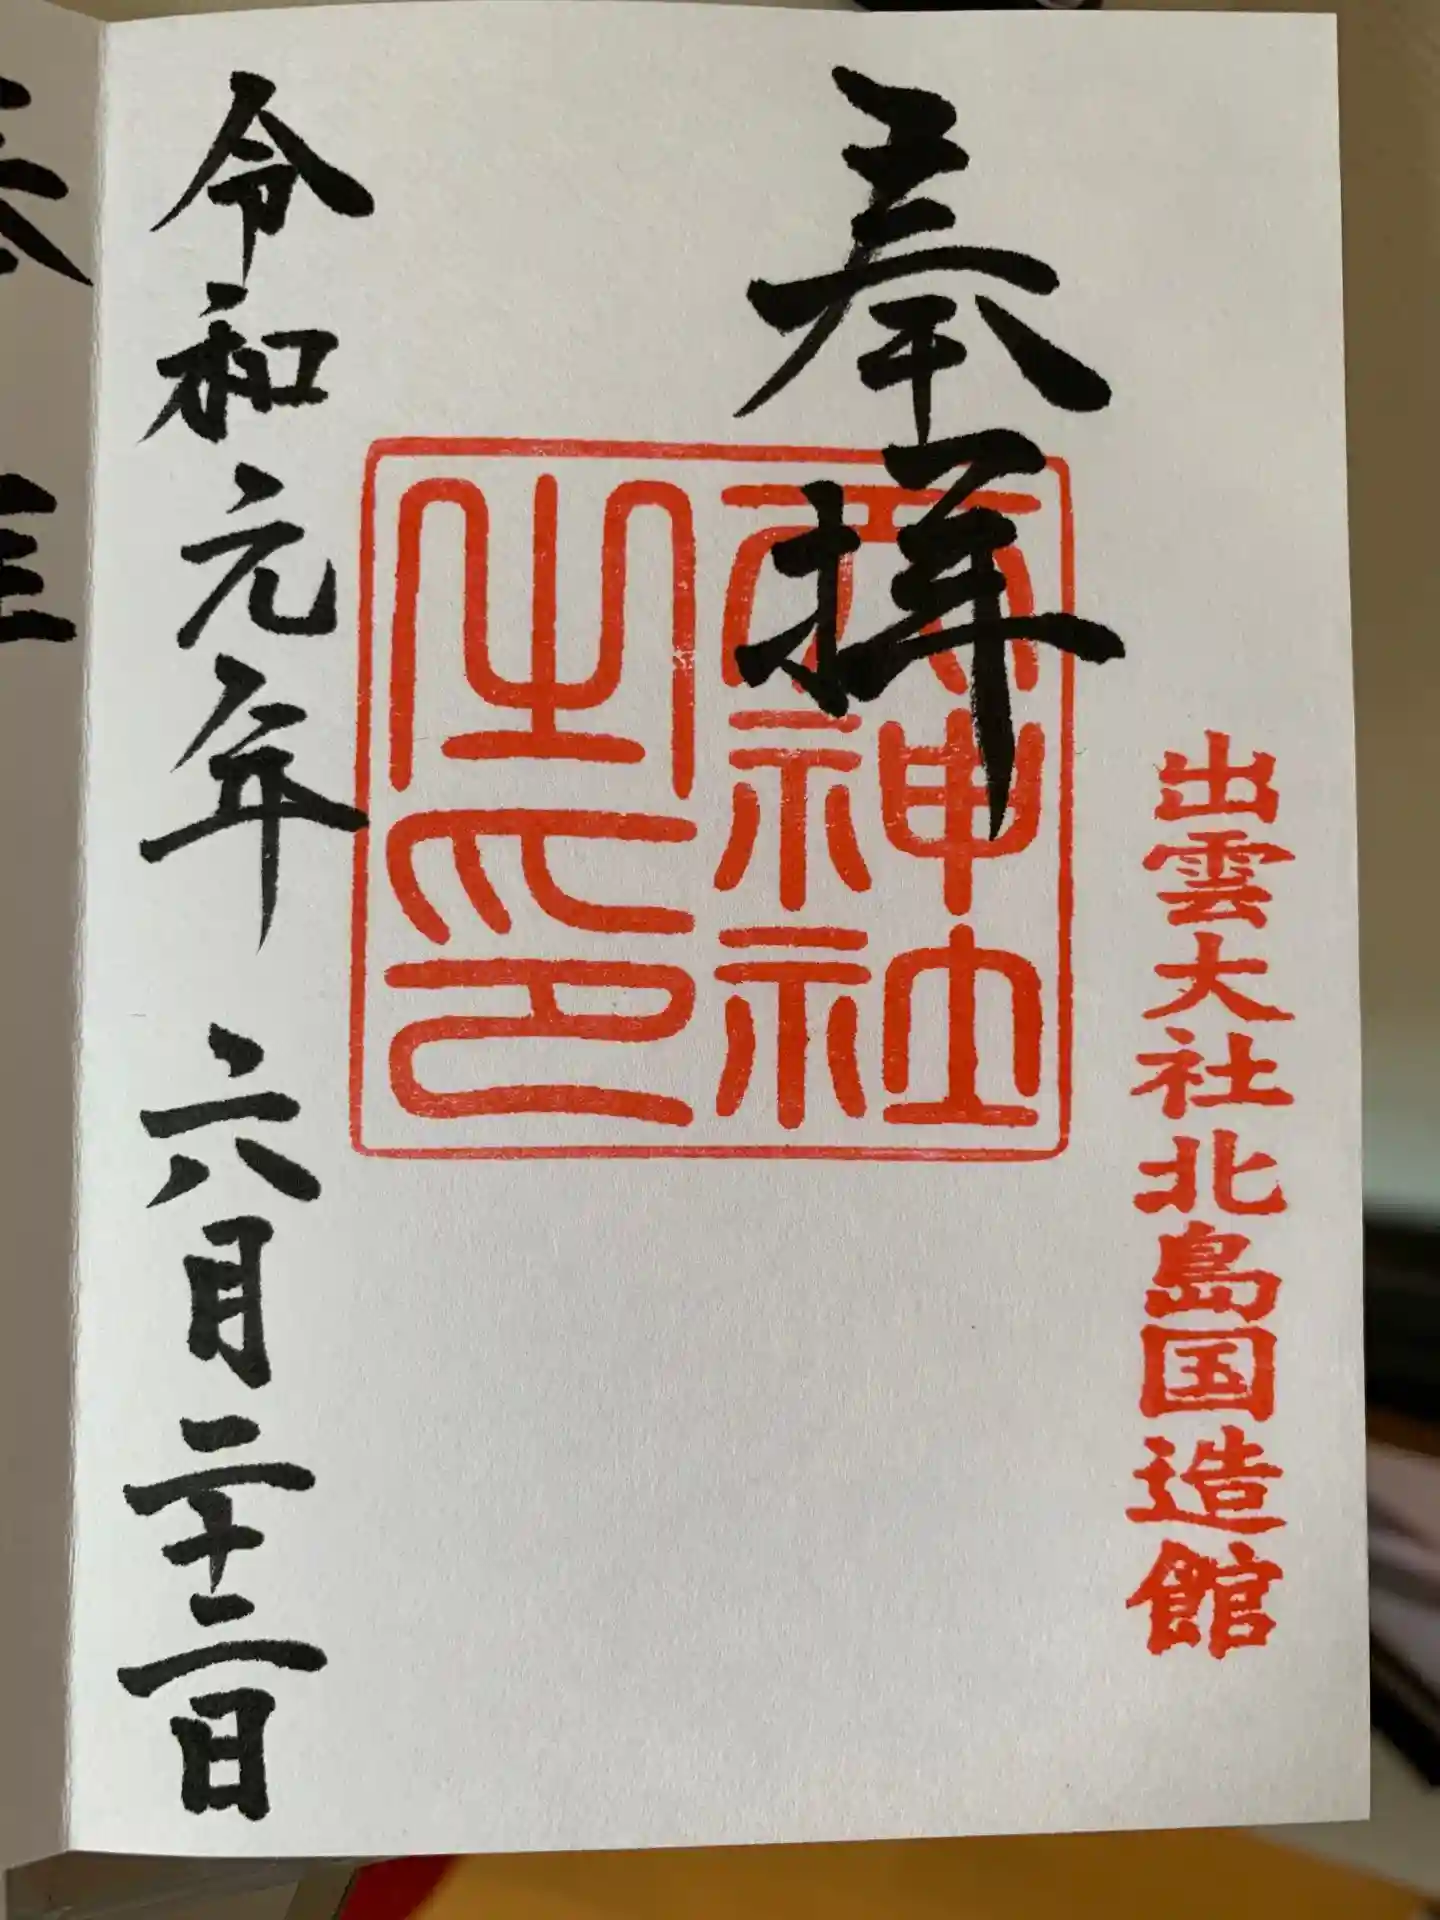 奉拝
出雲大社北島国造館
天神社
之印
令和元年 六月二十二日